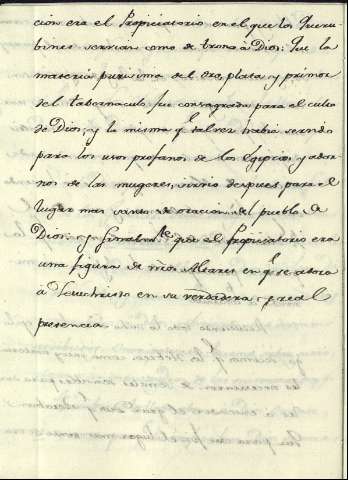 cion era el Propiciatorio en el que los Queru-
bines servian como de trono a Dios: Que la
materia purisima del oro, plata y primor
del tabernaculo fue consagrada para el culto
de Dios; y la misma q.e tal vez habia servido
para los usos profanos de los Egipcios, y ador-
nos de las mugeres, sirvio despues para el
lugar mas santo de oracion del pueblo de
Dios: y finalm.te que el Propiciatorio era
una figura de ntros Altares en q.e se adora
a Jesuchristo en su verdadera y real
presencia.